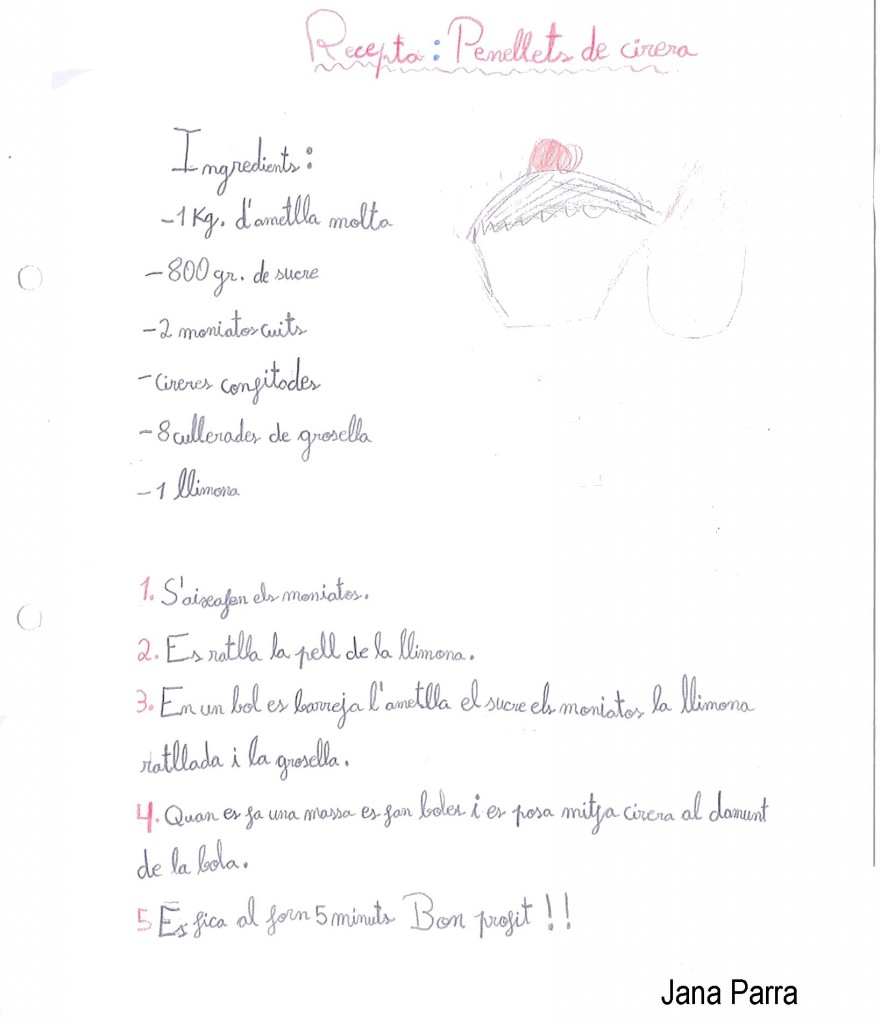 Recepta: Penellets de cirera
Ingredients:
-1 Kg. d'ametlla molta
-800 gr. de sucre
-2 moniatos cuits
-cireres confitades
-8 cullerades de grosella
-1 llimona
1. S'aixafen els moniatos.
2. Es ratlla la pell de la llimona.
3. En un bol es barreja l'ametlla el sucre els moniatos la llimona
ratllada i la grosella.
4. Quan es fa una massa es fan boles i es posa mitja cirera al damunt
de la bola.
5 Es fica al forn 5 minuts Bon profit!!
Jana Parra